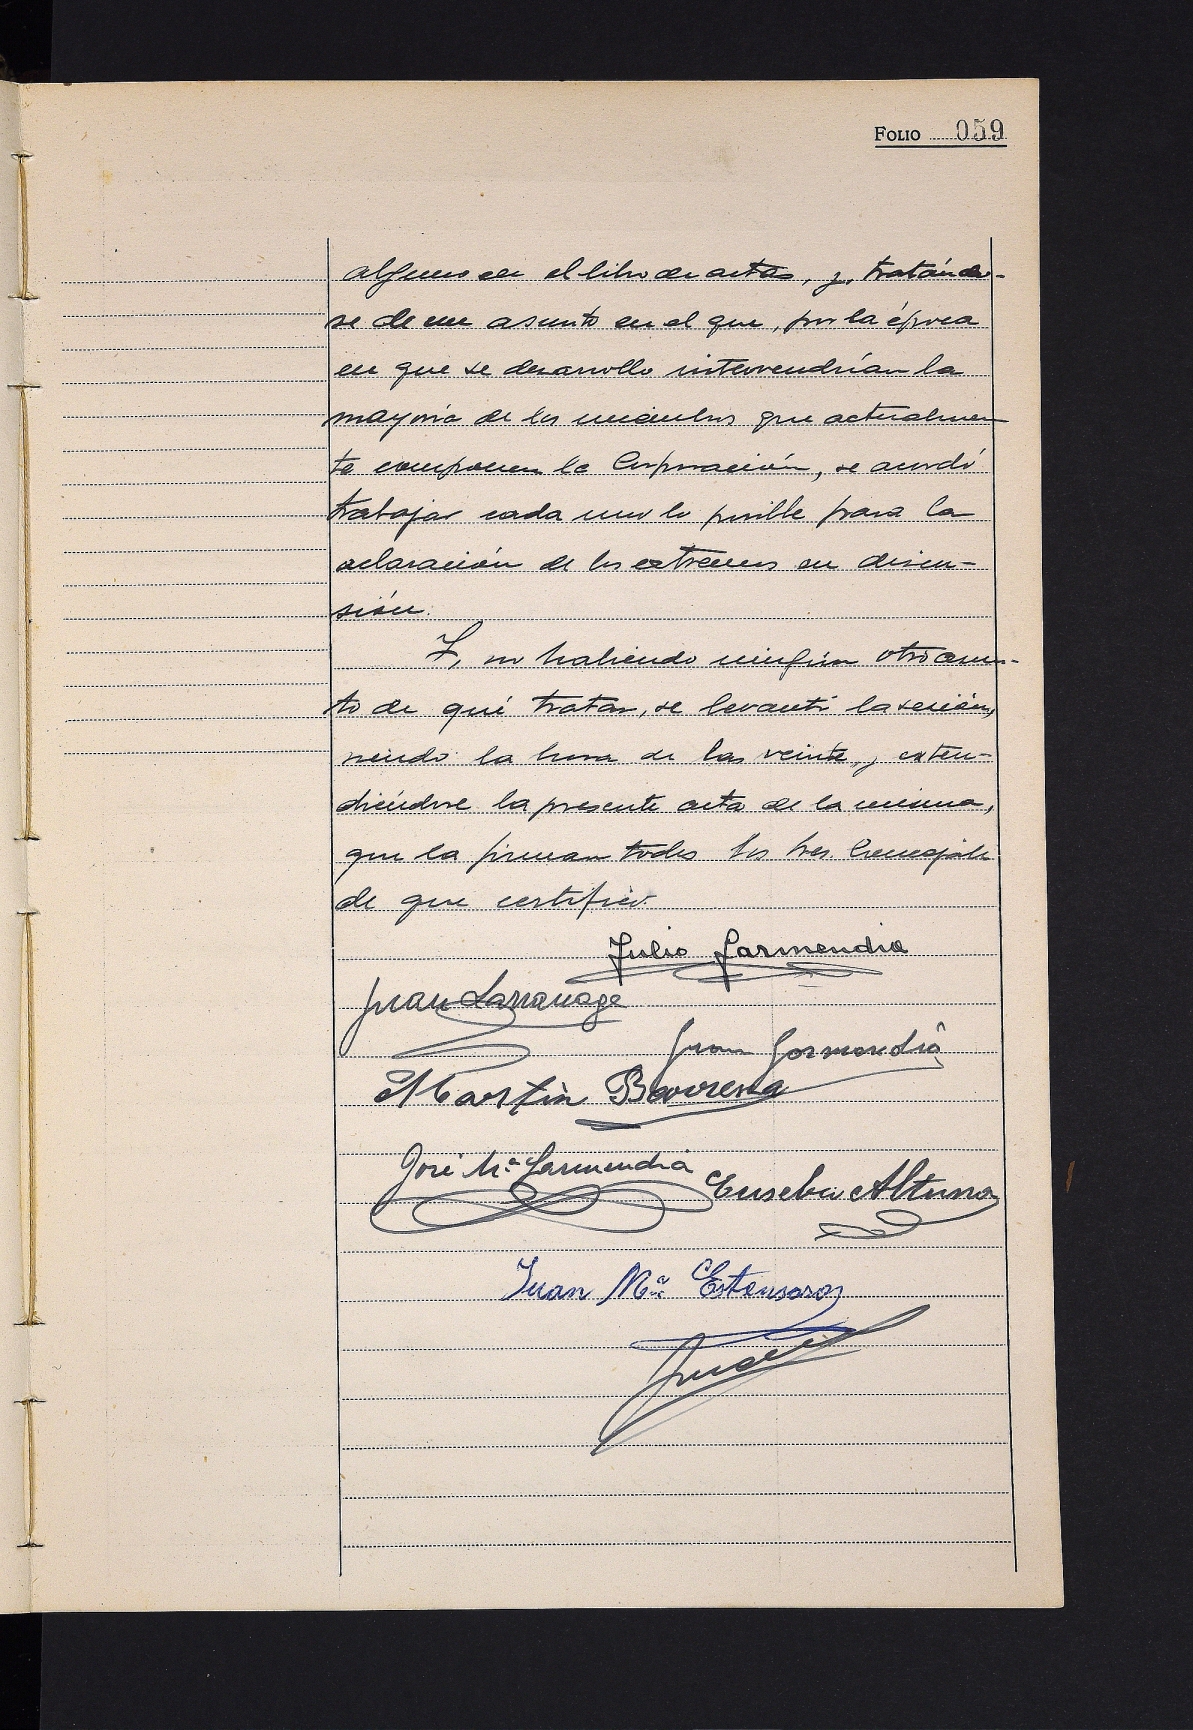 Folio 059
alguno en el libro de actas, y, tratándo-
se de un asunto en el que, por la época
en que se desarrollo intervendrían la
mayoría de los miembros que actualmen
te componen la Corporación, se acordó
trabajar cada uno lo posible para la
aclaración de los extremos en discu-
sión.
Y, no habiendo ningún otro asun-
to de qué tratar, se levantó la sesión,
siendo la hora de las veinte, y exten-
diéndose la presente acta de la misma,
que la firman todos los Sres. Concejales
de que certifico.
Julio Garmendia
Juan Larrañaga
Juan Garmendia
Martín Barrena
José Mª Garmendia
Eusebio Altuna
Juan Mª Estensoro